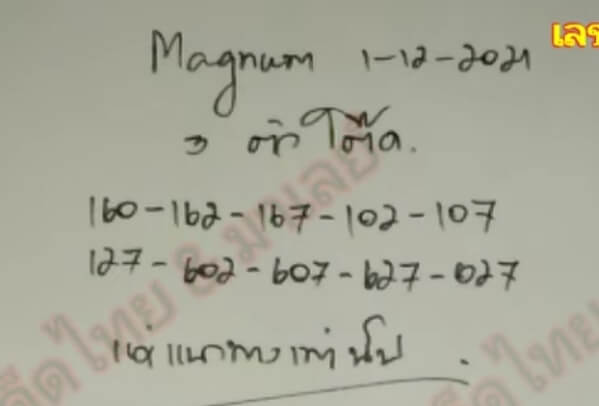 เลข
Magnum 1-12-2021
3 ตัว โต๊ด.
160-162-167-102-107
127-602-607-627-027
แค่แนวทางเท่านั้น.